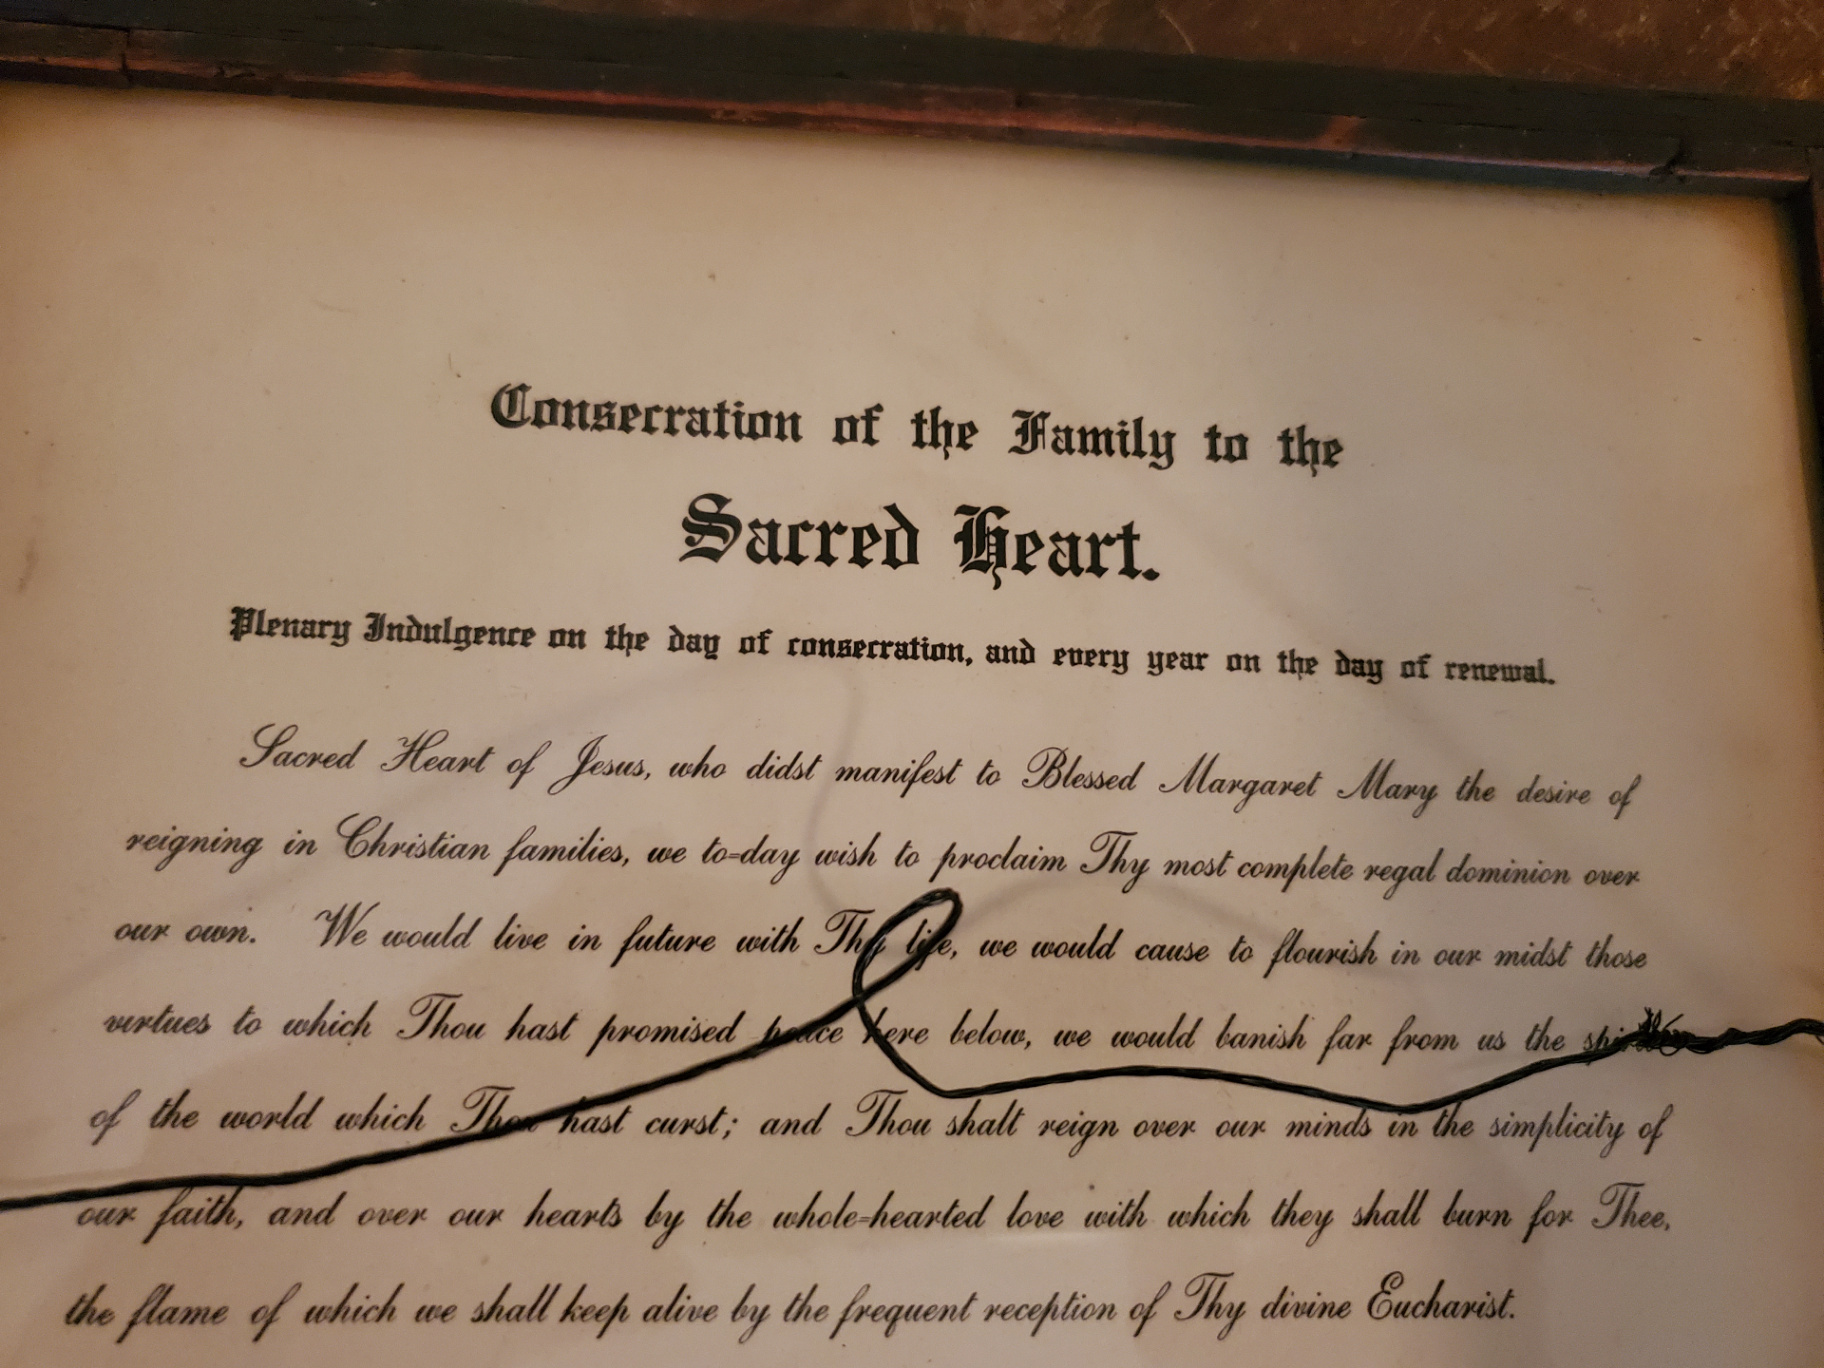 Consecration of the Family to the
Sacred Heart.
Plenary Indulgence on the day of consecration, and every year on the day of renewal.
Sacred Heart of Jesus, who didst manifest to Blessed Margaret Mary the desire of
reigning in Christian families, we to-day wish to proclaim Thy most complete regal dominion over
our own. We would live in future with Thy life, we would cause to flourish in our midst those
virtues to which Thou hast promised peace here below, we would banish far from us the
of the world which Thou hast curst; and Thou shalt reign over our minds in the simplicity of
our faith, and over our hearts by the whole-hearted love with which they shall burn for Thee,
the flame of which we shall keep alive by the frequent reception of Thy divine Eucharist.